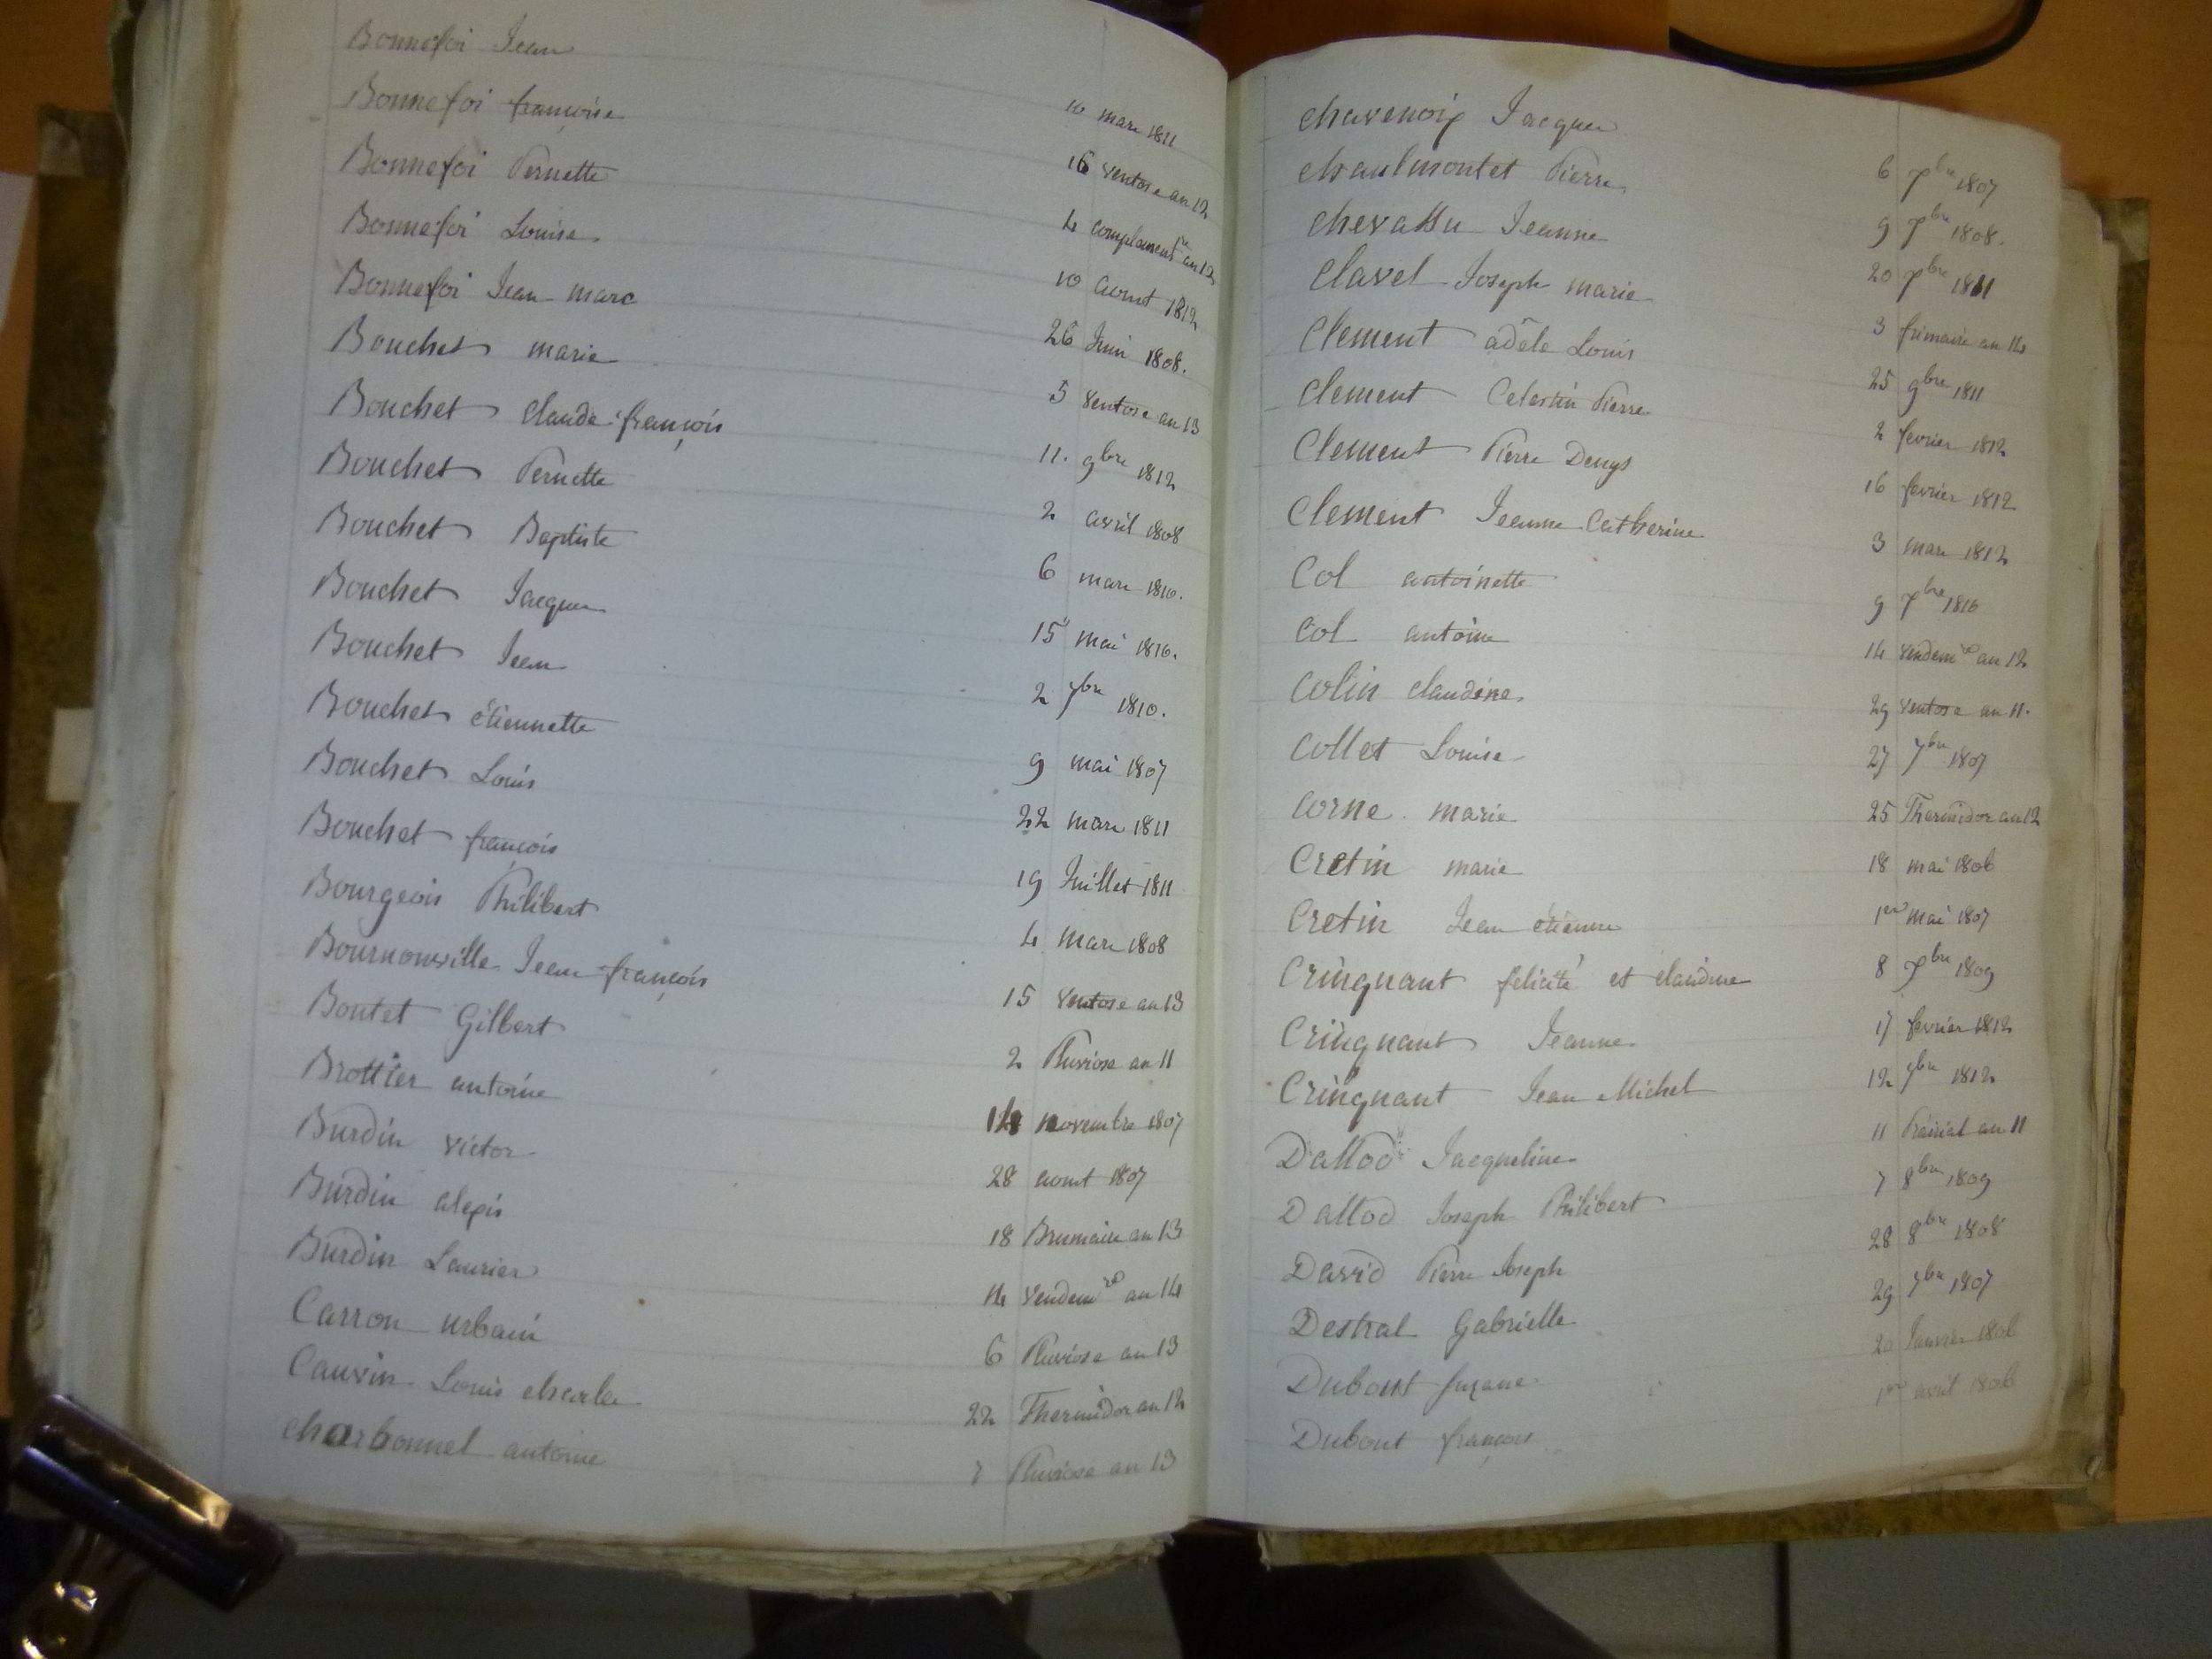 Bonnefoi Jean 10 mars 1811
Bonnefoi françoise 16 ventose an 12
Bonnefoi Pernette 4 complement.re an 12
Bonnefoi Louise 10 aout 1812
Bonnefoi Jean marc 26 Juin 1808.
Bouchet marie 5 ventose an 13
Bouchet claude françois 11. 9bre 1812
Bouchet Pernette 2 avril 1808
Bouchet Baptiste 6 mars 1810.
Bouchet Jacques 15 mai 1810.
Bouchet Jean 2 7bre 1810.
Bouchet étiennette 9 mai 1807
Bouchet Louis 22 mars 1811
Bouchet françois 19 Juillet 1811
Bourgeois Philibert 4 mars 1808
Bournonville Jean françois 15 ventose an 13
Boutet Gilbert 2 Pluviose an 11
Brottier antoine 14 novembre 1807
Burdin victor 28 aout 1807
Burdin alexis 18 Brumaire an 13
Burdin Laurier 14 vendemre an 14
Carron urbain 6 Pluviose an 13
Cauvin Louis charles 22 Thermidor an 12
charbonnel antoine 7 Pluviose an 13
chavenoix Jacques 6 7bre 1807
chaulmontet Pierre 9 7bre 1808.
chevassu Jeanne 20 7bre 1811
Clavel Joseph marie 3 frimaire an 14
Clement adèle Louis 25 9bre 1811
Clement Celestin Pierre 2 fevrier 1812
Clement Pierre Denys 16 fevrier 1812
Clement Jeanne Catherine 3 mars 1812
Col antoinette 9 7bre 1810
Col antoine 14 vendemre an 12
Colin claudine 29 ventose an 11.
Collet Louise 27 7bre 1807
Corne marie 25 Thermidor an 12
Cretin marie 18 mai 1806
Cretin Jean étienne 1er mai 1807
Cringuant felicité et claudine 8 7bre 1809
Cringuant Jeanne 17 fevrier 1812
Cringuant Jean Michel 12 9bre 1812
Dallod Jacqueline 11 Prairial an 11
Dallod Joseph Philibert 7 8bre 1809
David Pierre Joseph 28 8bre 1808
Destral Gabrielle 29 7bre 1807
Dubout suzane 20 Janvier 1806
Dubout françois 1er avril 1806